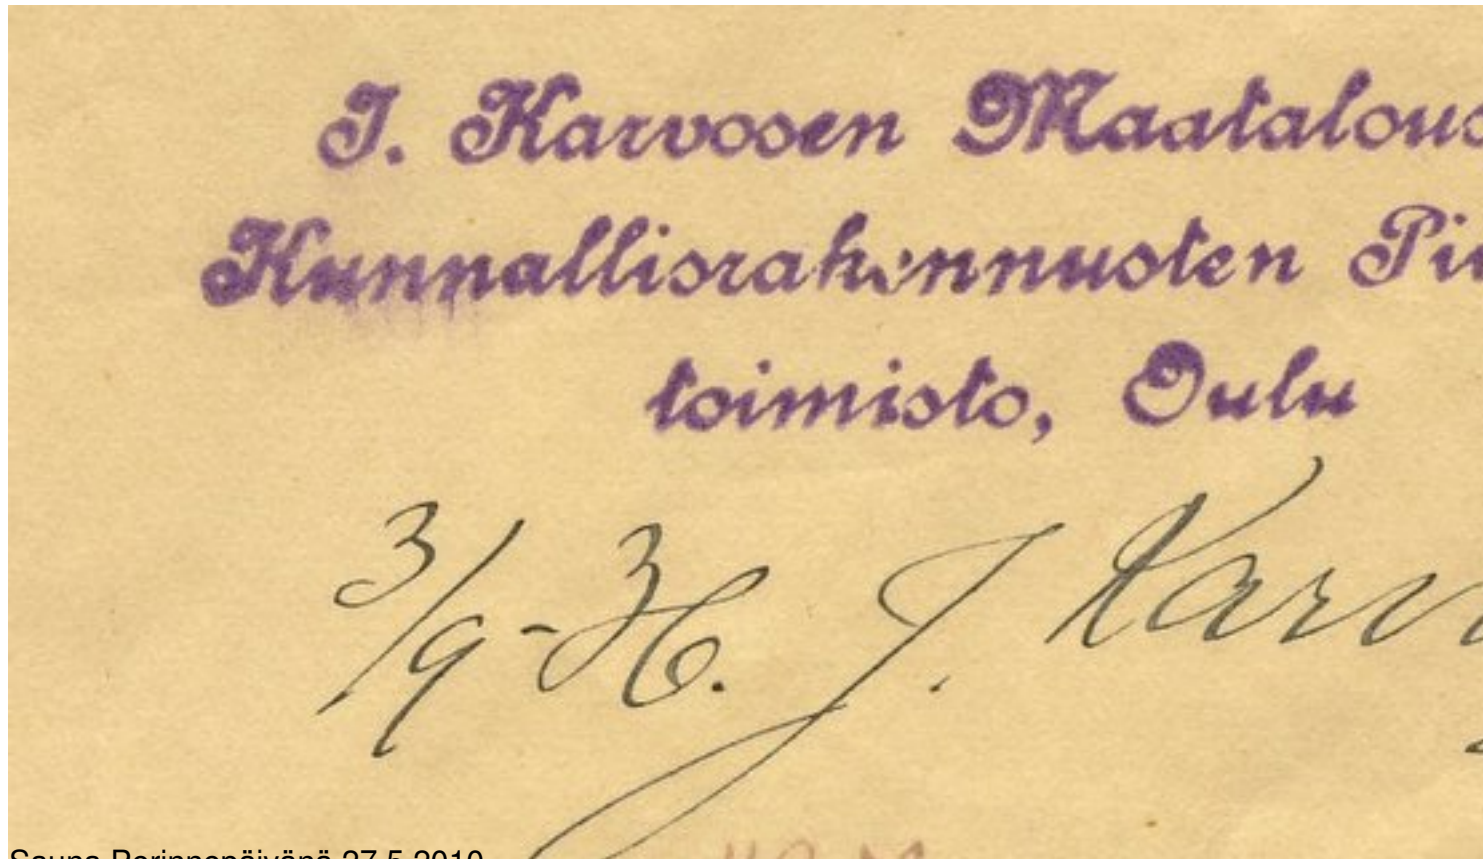 J. Karvosen Maatalous
Kunnallisrakennusten Pii
toimisto, Oulu
3/9-36. J. Karv
Sauna Perinnepäivänä 27.5.2010